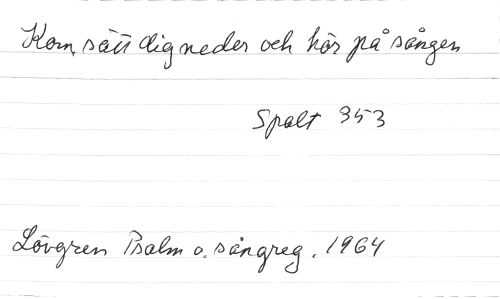 Kom, sätt dig neder och hör på sången
Spalt 353
Lövgren Psalm o. sångreg. 1964